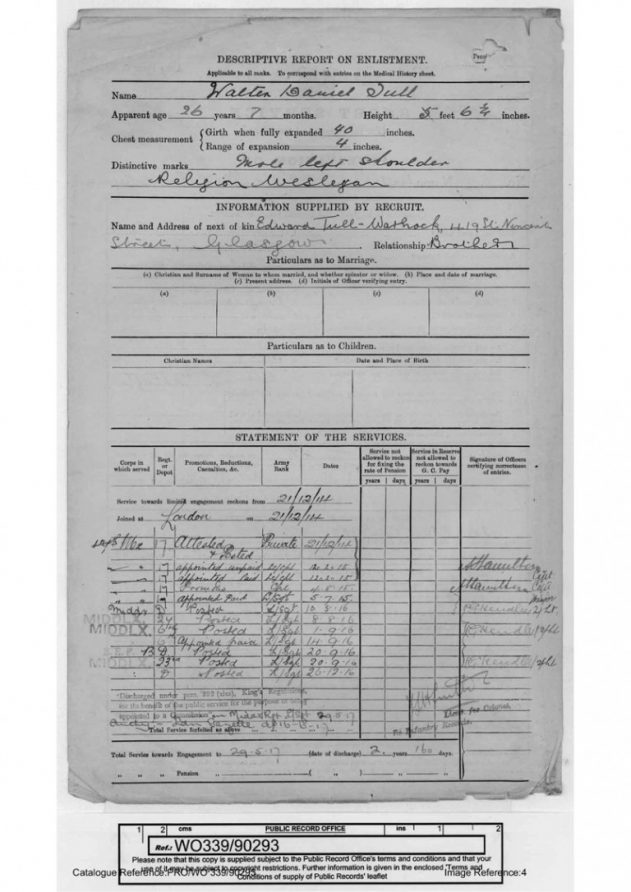 DESCRIPTIVE REPORT ON ENLISTMENT.
Applicable to all ranks. To correspond with entries on the Medical History sheet.
Name Walter Daniel Tull
Apparent age 26 years 7 months. Height 5 feet 6 1/4 inches.
Chest measurement { Girth when fully expanded 40 inches.
Range of expansion 4 inches.
Distinctive marks Mole left shoulder
Religion Wesleyan
INFORMATION SUPPLIED BY RECRUIT.
Name and Address of next of kin Edward Tull-Warnock, 419 St. Vincent
Street, Glasgow. Relationship Brother
Particulars as to Marriage.
(a) Christian and Surname of Woman to whom married, and whether spinster or widow. (b) Place and date of marriage.
(c) Present address. (d) Initials of Officer verifying entry.
(a) (b) (c) (d)
Particulars as to Children.
Christian Names Date and Place of Birth
STATEMENT OF THE SERVICES.
Corps in which served Regt. or Depot Promotions, Reductions, Casualties, &c. Army Rank Dates Service not allowed to reckon for fixing the rate of Pension Service in Reserve not allowed to reckon towards G. C. Pay Signature of Officers certifying correctness of entries.
years days years days
Service towards limited engagement reckons from 21/12/14
Joined at London on 21/12/14
17 Attested Private 21/12/14
& Posted
appointed unpaid
appointed Paid
appointed Paid L/Sgt 5.7.15.
Middx Posted L/Sgt 10.8.16
MIDDLX. 24 Posted L/Sgt 8.8.16
MIDDLX. 6th Posted L/Sgt 1.9.16
6 Appointed paid L/Sgt 14.9.16
B.E.F. Posted L/Sgt 20.9.16
MIDDLX. 23rd Posted L/Sgt 20.9.16
D Posted L/Sgt 26.12.16
Discharged under para. 392 King's Regulations,
for the benefit of the public service for the purpose of being
appointed to a Commission in Middx Regt 29.5.17
for Colonel,
i/c Infantry Records.
Total Service forfeited as above
Total Service towards Engagement to 29.5.17 (date of discharge) 2 years 160 days.
„ „ Pension „ ( „ ) „ „
1 2 cms PUBLIC RECORD OFFICE ins 1 2
Ref.: WO339/90293
Please note that this copy is supplied subject to the Public Record Office's terms and conditions and that your
use of it may be subject to copyright restrictions. Further information is given in the enclosed 'Terms and
Conditions of supply of Public Records' leaflet
Catalogue Reference:PRO/WO 339/90293 Image Reference:4